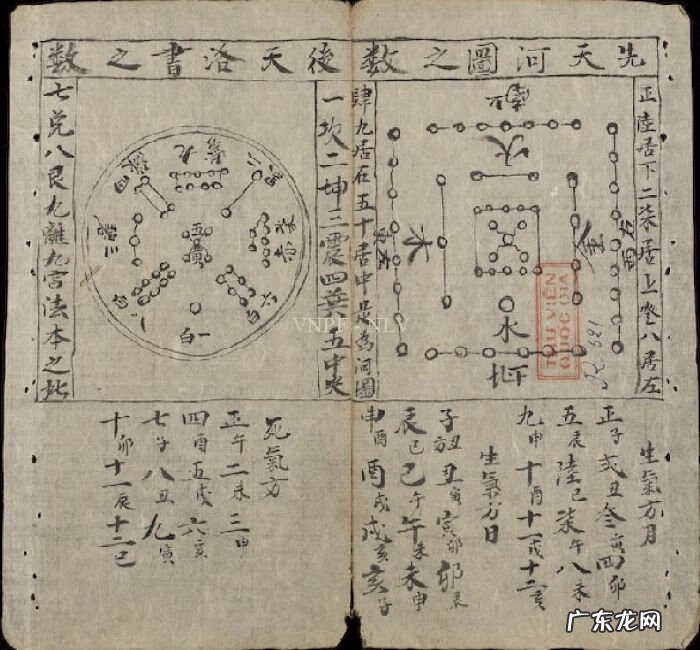 先天河圖之数
正陸居下二柒居上叁八居左
肆九居右五十居中是為河圖
南
火
木
金
水
北下
後天洛書之数
一坎二坤三震四巽五中央
七兌八艮九離九宮法本之此
九紫
五黃
六白
一白
生氣方月
正子弍丑叁寅四卯
五辰陸巳柒午八未
九申十酉十一戌十二亥
生氣方日
子丑丑寅寅卯卯辰
辰巳巳午午未未申
申酉酉戌戌亥亥子
死氣方
正午二未三申
四酉五戌六亥
七子八丑九寅
十卯十一辰十二巳
THƯ VIỆN
QUỐC GIA
VNPF - NLV
广东龙网